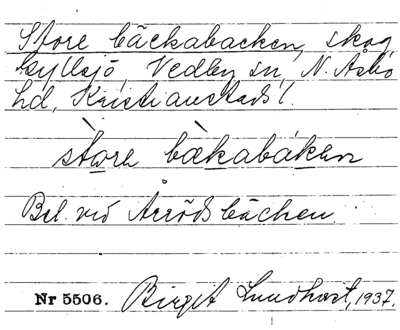 Store bäckabacken, skog,
Gyllsjö, Vedby sn, N. Åsbo
hd, Kristianstads l.
stòre bækabáken
Bel. vid Årrödsbäcken.
Nr 5506. Birgit Lundhart, 1937.